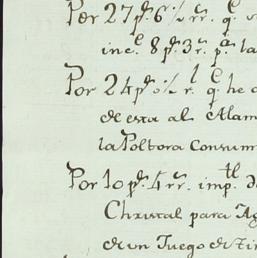 Por 27 p.s 6 ½ r.s q.e
inc.e 8 p.s 3 r.s p.a la
Por 24 p.s ½ r.l q.e he d
de esta al Alam
la Poltora Consum
Por 10 p.s 4 r.s imp.te d
Christal para Ag
de un Juego de Tin